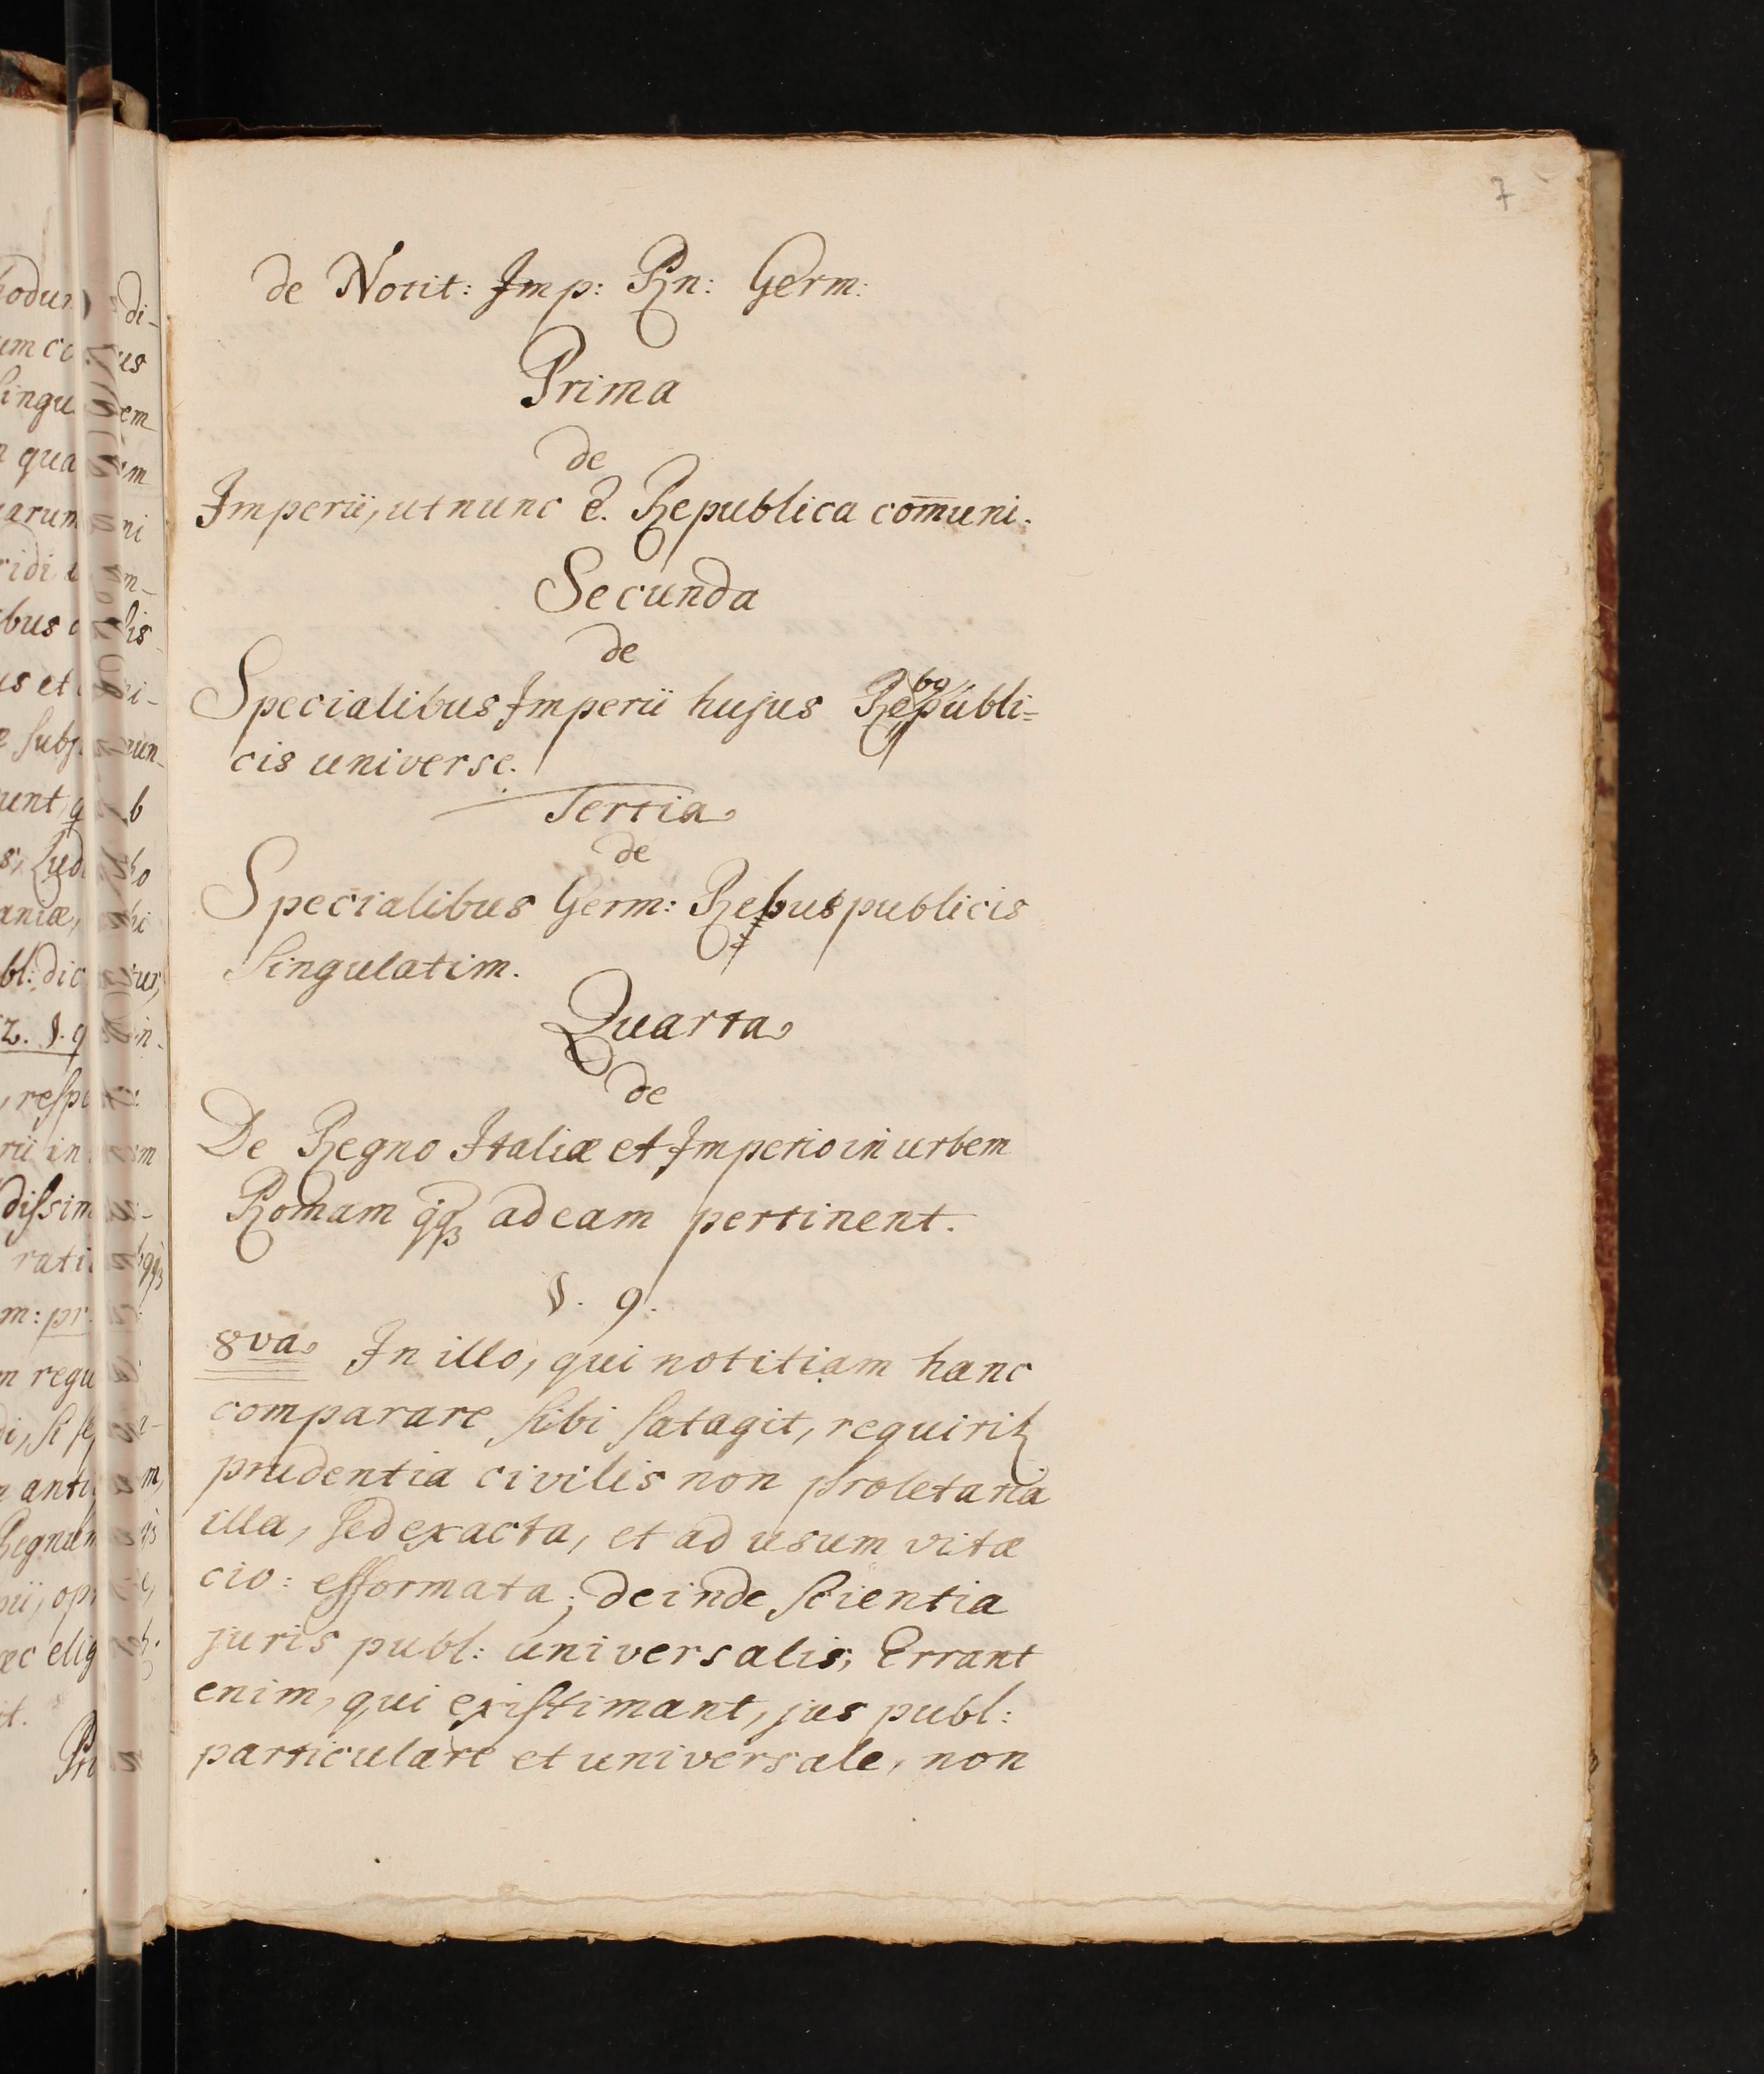 7
de Notit: Imp: Rn: Germ:
Prima
de
Imperii, ut nunc e. Republica com̅uni.
Secunda
de
Specialibus Imperii hujus Rebqpubli=
cis universe.
Tertia
de
Specialibus Germ: Rebuspublicis
singulatim.
Quarta
de
De Regno Italiæ et Imperio in urbem
Romam qq₃ ad eam pertinent.
§. 9.
8va In illo, qui notitiam hanc
comparare sibi satagit, requirit
prudentia civilis non proletaria
illa, sed exacta, et ad usum vitæ
cio: efformata; deinde scientia
juris publ: universalis; Errant
enim, qui existimant, jus publ:
particulare et universale, non